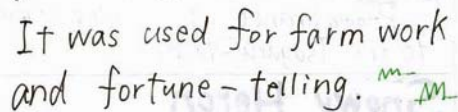 It was used for farm work
and fortune-telling.